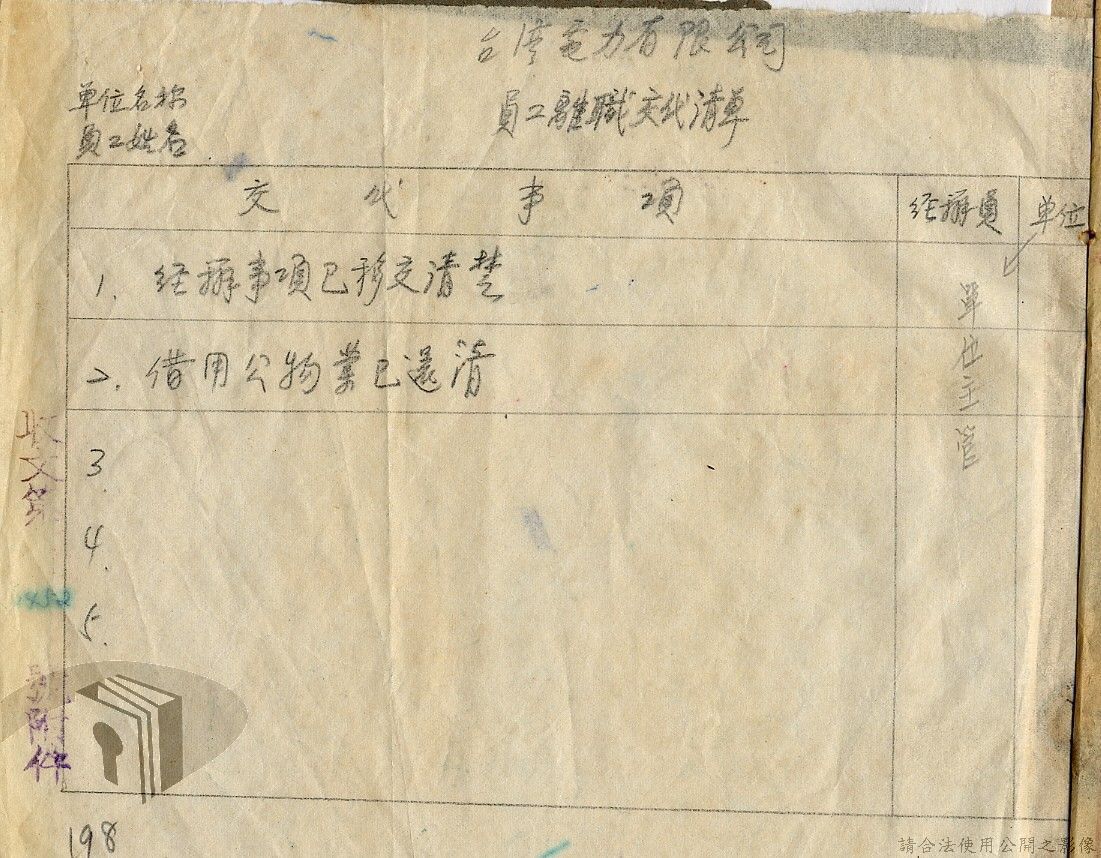 台湾電力有限公司
員工離職交代清单
单位名称
員工姓名
交代事項
経辦員
单位
1. 经辦事項已移交清楚
2. 借用公物業已還清
3
4.
5.
單位主管
收文第
1452
號附件
198
請合法使用公開之影像